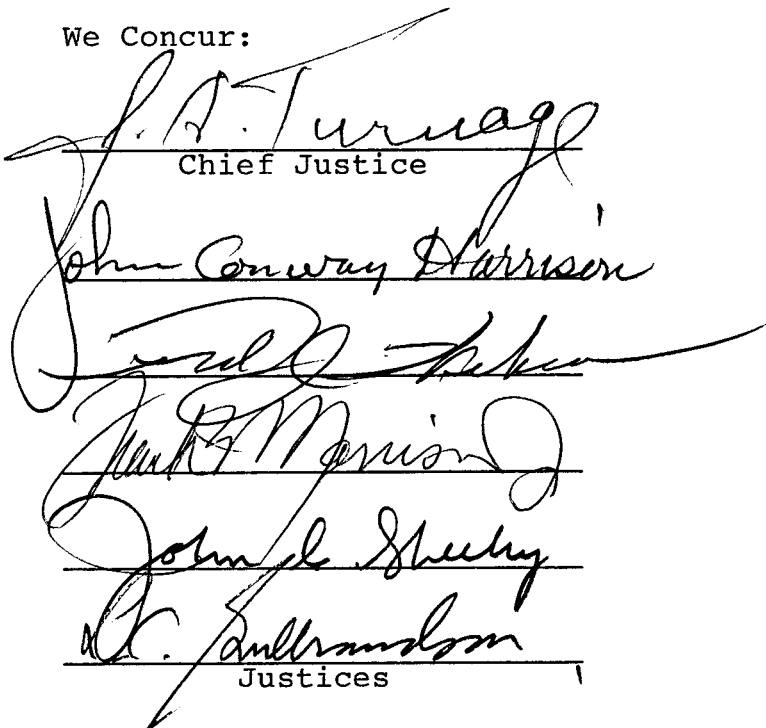 We Concur:
J. A. Turnage
Chief Justice
John Conway Harrison
Frank B. Morrison Jr
John C. Sheehy
L.C. Gulbrandson
Justices